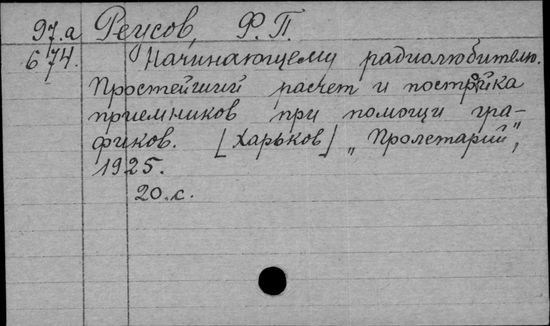 97.а Реусов, Ф.П.
674. Начинающему радиолюбителю.
Простейший расчет и постройка
приемников при помощи гра-
фиков. [Харьков] „Пролетарий",
1925.
20.с.